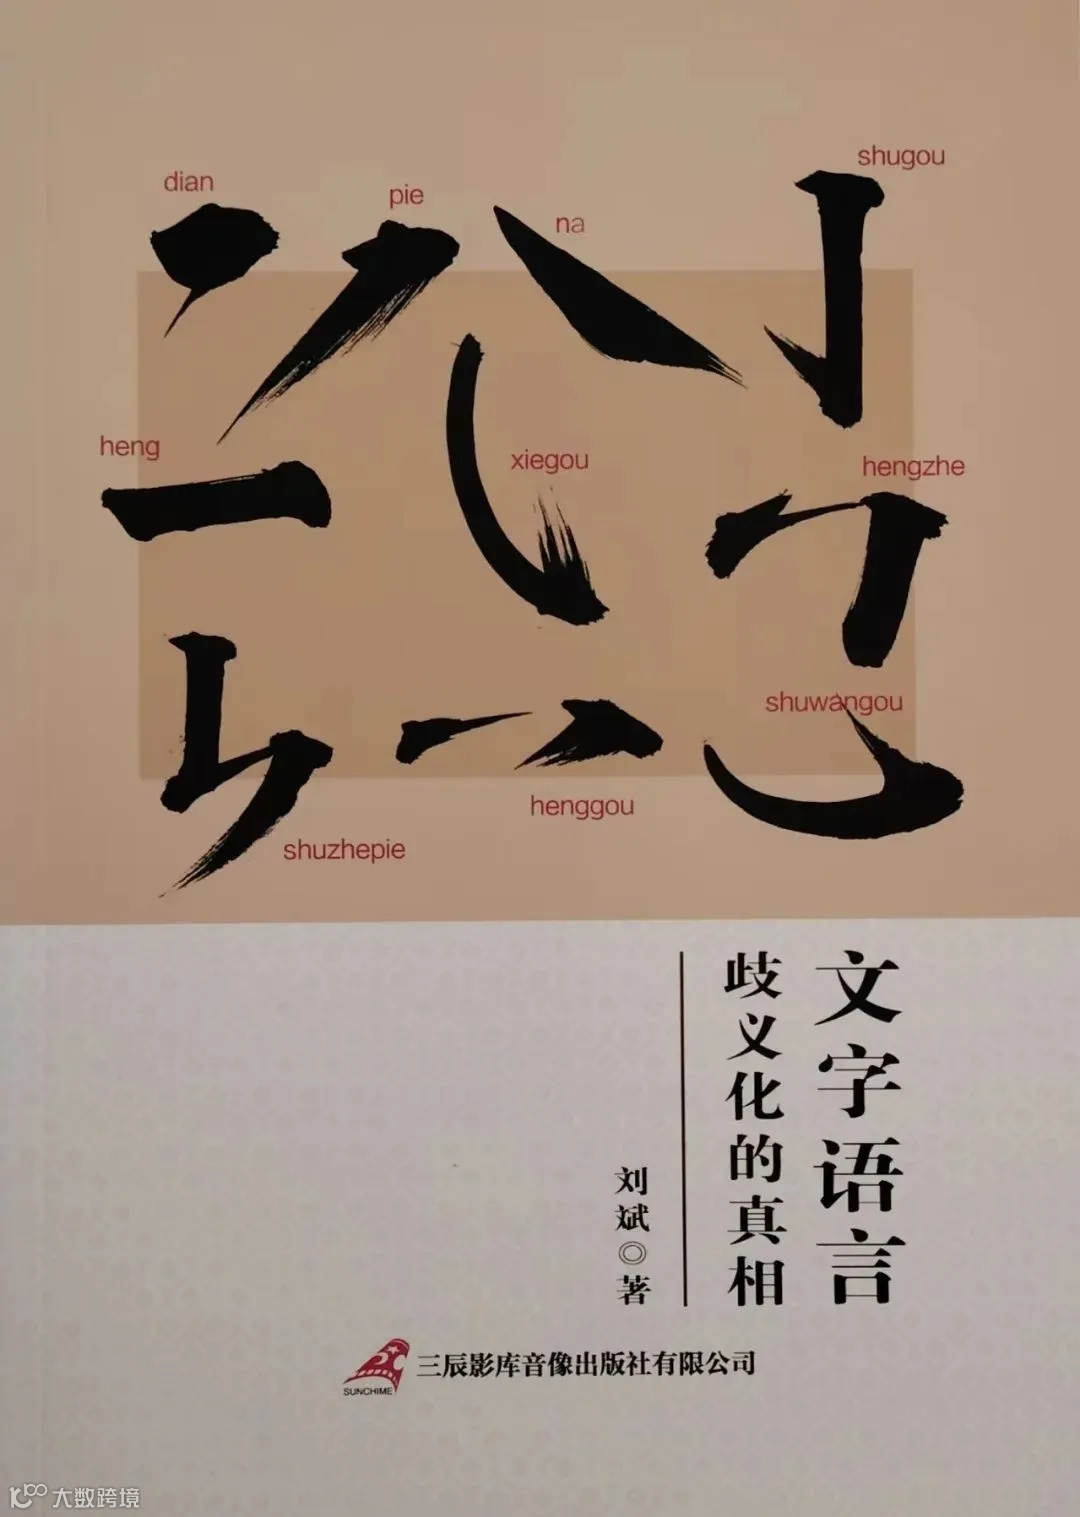 dian
pie
na
shugou
heng
xiegou
hengzhe
shuwangou
henggou
shuzhepie
文字语言
歧义化的真相
刘斌◎著
SUNCHIME
三辰影库音像出版社有限公司
大数跨境